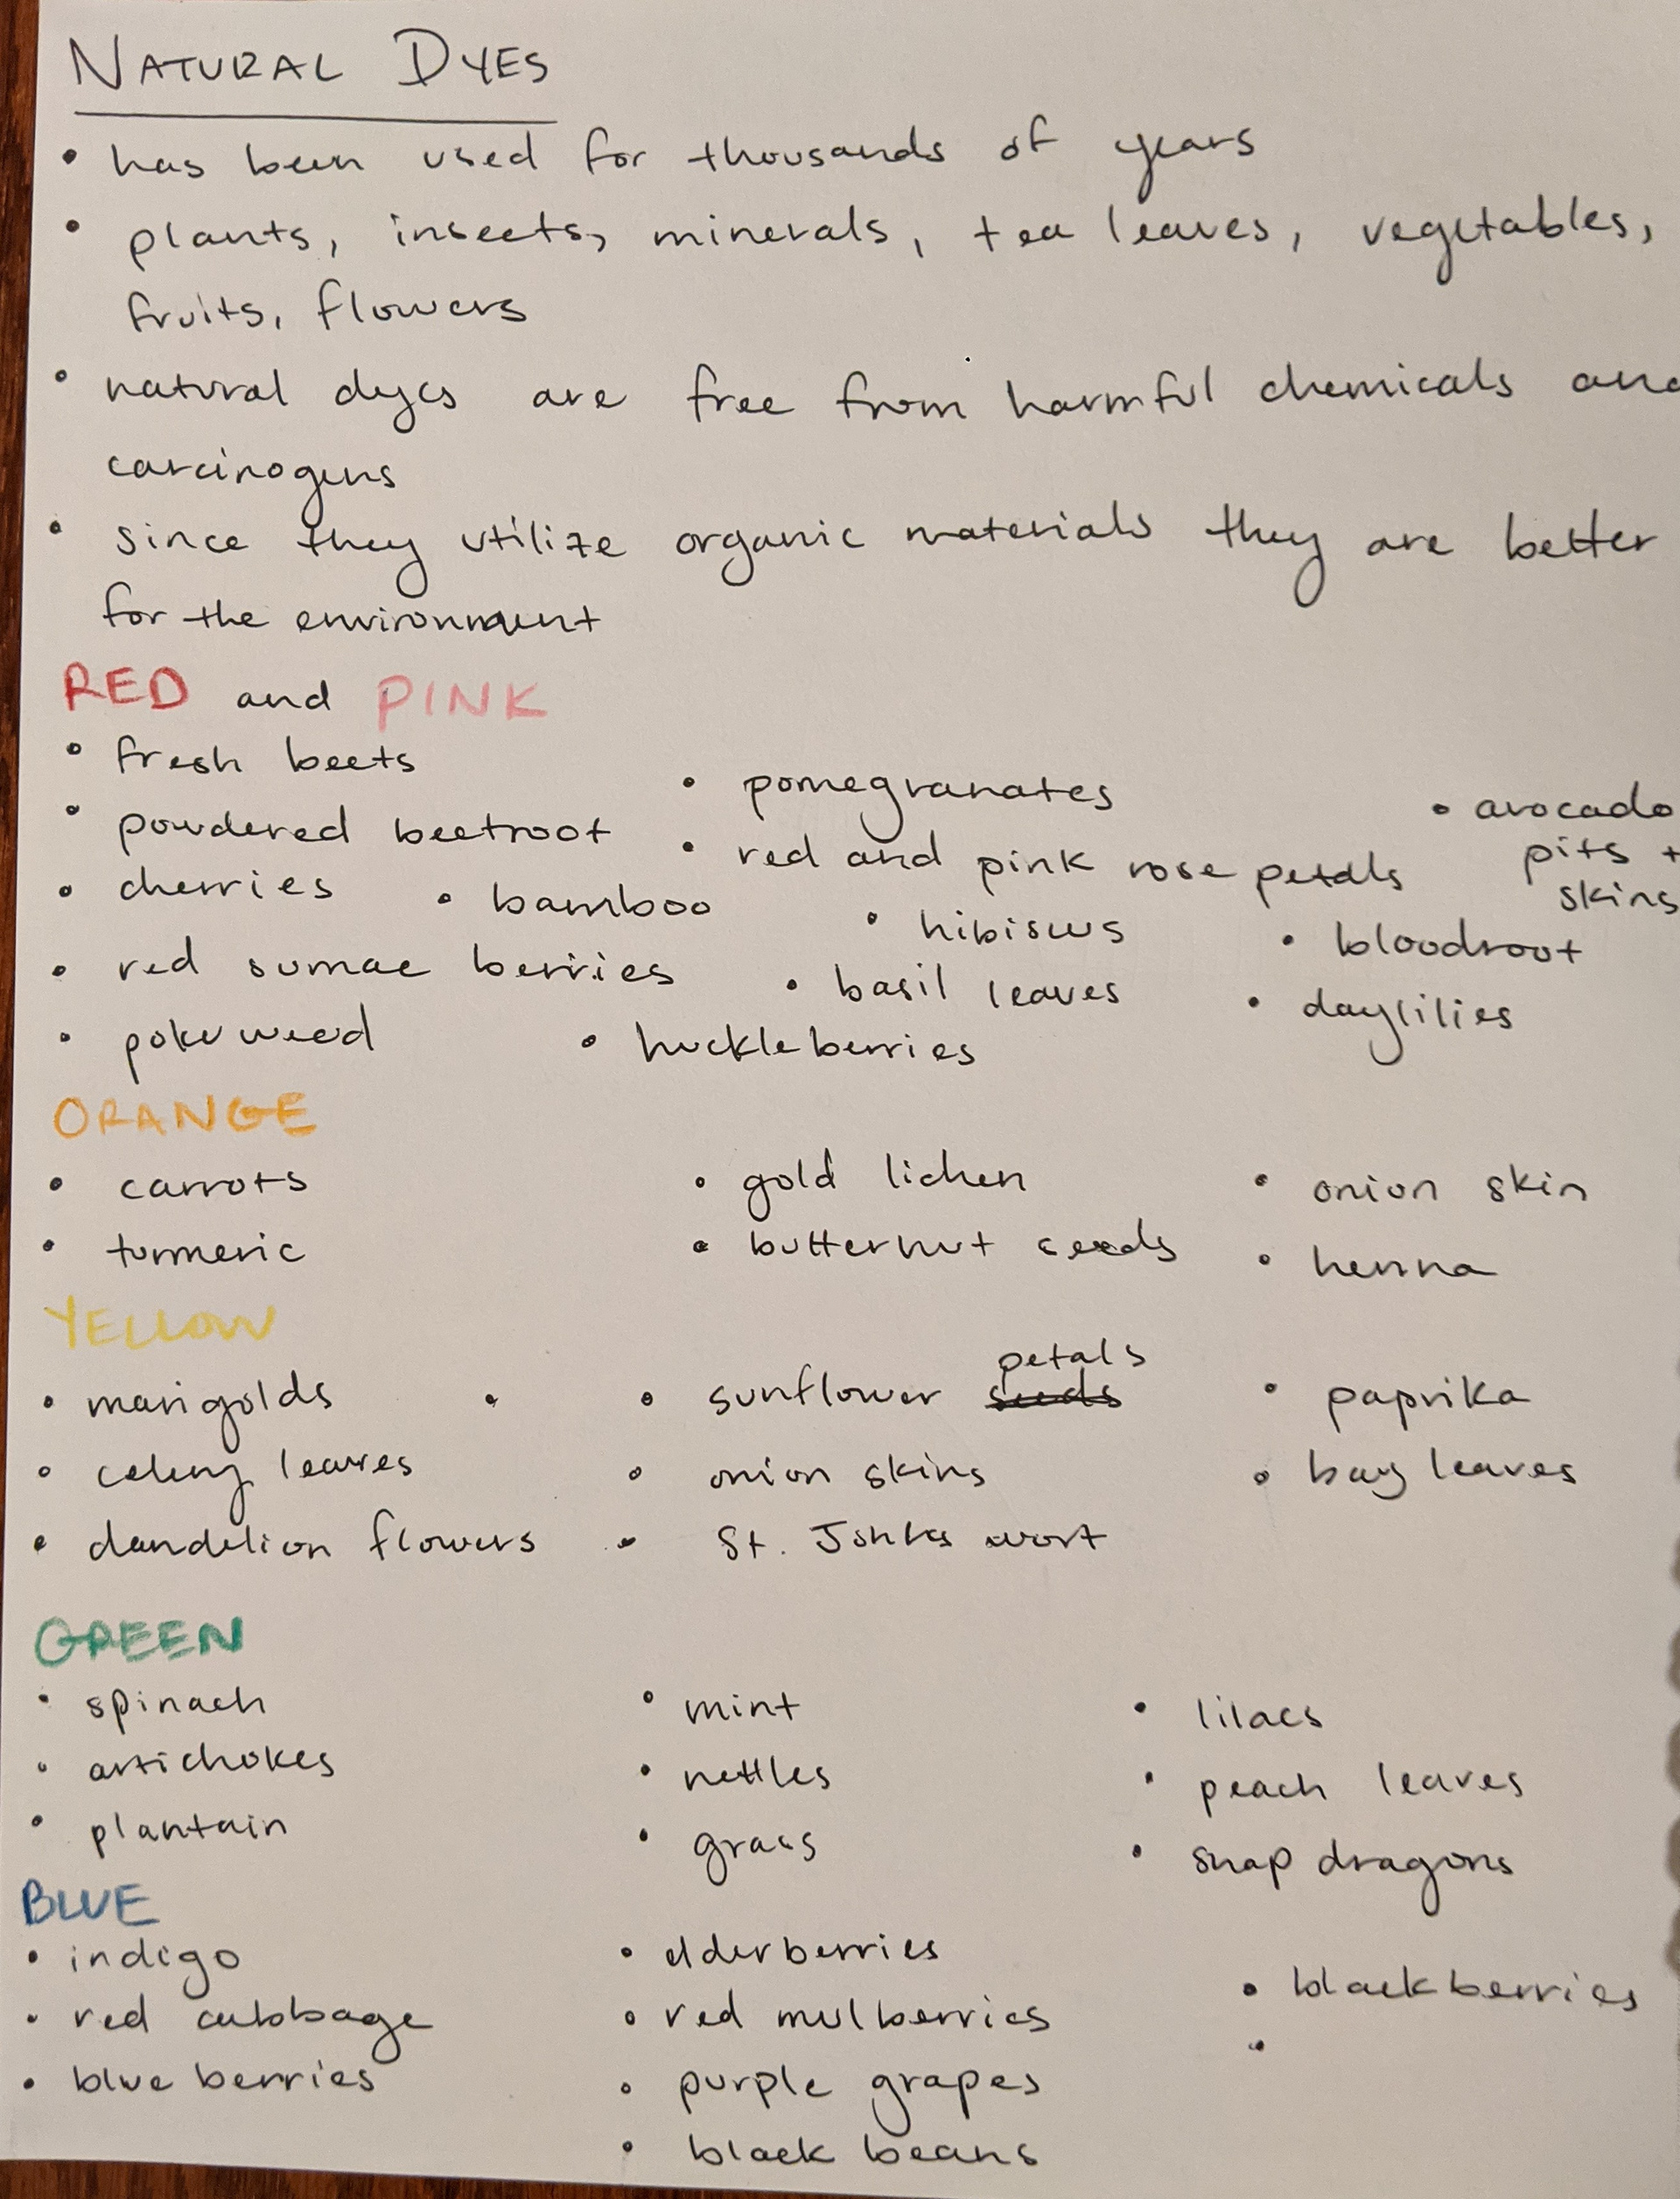 NATURAL DYES
• has been used for thousands of years
• plants, insects, minerals, tea leaves, vegetables,
fruits, flowers
• natural dyes are free from harmful chemicals and
carcinogens
• since they utilize organic materials they are better
for the environment
RED and PINK
• fresh beets
• powdered beetroot
• cherries
• bamboo
• red sumac berries
• pokeweed
• huckleberries
• pomegranates
• red and pink rose petals
• hibiscus
• basil leaves
• avocado
pits +
skins
• bloodroot
• daylilies
ORANGE
• carrots
• turmeric
• gold lichen
• butternut seeds
• onion skin
• henna
YELLOW
• marigolds
• celery leaves
• dandelion flowers
•
petals
• sunflower seeds
• onion skins
• St. Johns wort
• paprika
• bay leaves
GREEN
• spinach
• artichokes
• plantain
• mint
• nettles
• grass
• lilacs
• peach leaves
• snap dragons
BLUE
• indigo
• red cabbage
• blueberries
• elderberries
• red mulberries
• purple grapes
• black beans
• blackberries
•